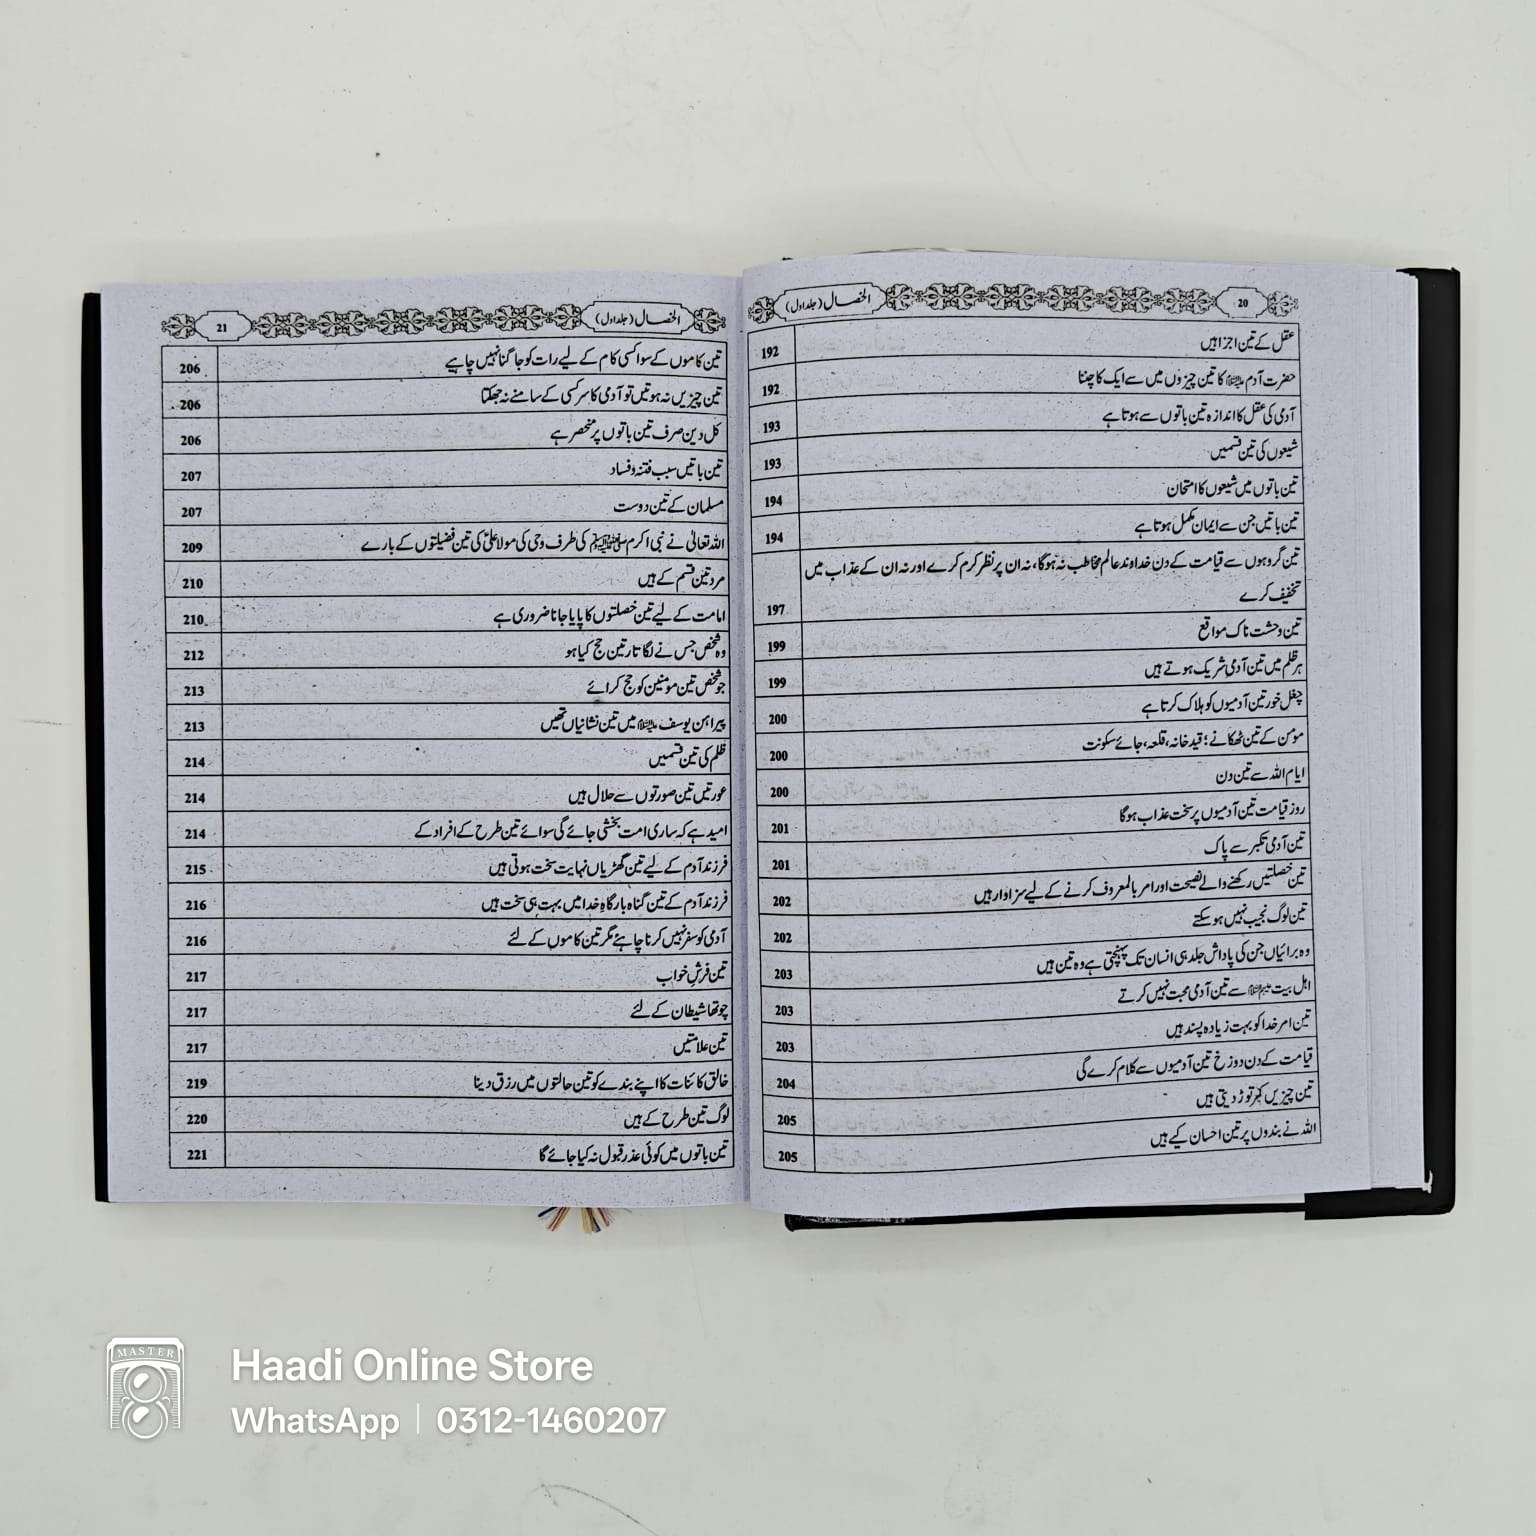 20
الخصال (جلد اول)
عقل کے تین اجزا ہیں 192
حضرت آدم علیہ السلام کا تین چیزوں میں سے ایک کا چننا 192
آدمی کی عقل کا اندازہ تین باتوں سے ہوتا ہے 193
شیعوں کی تین قسمیں 193
تین باتوں میں شیعوں کا امتحان 194
تین باتیں جن سے ایمان مکمل ہوتا ہے 194
تین گروہوں سے قیامت کے دن خداوند عالم مخاطب نہ ہوگا، نہ ان پر نظر کرم کرے اور نہ ان کے عذاب میں
تخفیف کرے 197
تین وحشت ناک مواقع 199
ہر ظلم میں تین آدمی شریک ہوتے ہیں 199
چغل خور تین آدمیوں کو ہلاک کرتا ہے 200
مومن کے تین ٹھکانے؛ قید خانہ، قلعہ، جائے سکونت 200
ایام اللہ سے تین دن 200
روز قیامت تین آدمیوں پر سخت عذاب ہوگا 201
تین آدمی تکبر سے پاک 201
تین خصلتیں رکھنے والے نصیحت اور امر بالمعروف کرنے کے لیے سزاوار ہیں 202
تین لوگ نجیب نہیں ہو سکتے 202
وہ برائیاں جن کی پاداش جلد ہی انسان تک پہنچتی ہے وہ تین ہیں 203
اہل بیت علیہم السلام سے تین آدمی محبت نہیں کرتے 203
تین امر خدا کو بہت زیادہ پسند ہیں 203
قیامت کے دن دوزخ تین آدمیوں سے کلام کرے گی 204
تین چیزیں کمر توڑ دیتی ہیں 205
اللہ نے بندوں پر تین احسان کیے ہیں 205
الخصال (جلد اول)
21
تین کاموں کے سوا کسی کام کے لیے رات کو جاگنا نہیں چاہیے 206
تین چیزیں نہ ہوتیں تو آدمی کا سر کسی کے سامنے نہ جھکتا 206
کل دین صرف تین باتوں پر منحصر ہے 206
تین باتیں سبب فتنہ و فساد 207
مسلمان کے تین دوست 207
اللہ تعالیٰ نے نبی اکرم ﷺ کی طرف وحی کی مولا علیؑ کی تین فضیلتوں کے بارے 209
مرد تین قسم کے ہیں 210
امامت کے لیے تین خصلتوں کا پایا جانا ضروری ہے 210
وہ شخص جس نے لگاتار تین حج کیا ہو 212
جو شخص تین مومنین کو حج کرائے 213
پیراہن یوسف علیہ السلام میں تین نشانیاں تھیں 213
ظلم کی تین قسمیں 214
عورتیں تین صورتوں سے حلال ہیں 214
امید ہے کہ ساری امت بخشی جائے گی سوائے تین طرح کے افراد کے 214
فرزند آدم کے لیے تین گھڑیاں نہایت سخت ہوتی ہیں 215
فرزند آدم کے تین گناہ بارگاہِ خدا میں بہت ہی سخت ہیں 216
آدمی کو سفر نہیں کرنا چاہئے مگر تین کاموں کے لئے 216
تین فرشِ خواب 217
چوتھا شیطان کے لئے 217
تین علامتیں 217
خالق کائنات کا اپنے بندے کو تین حالتوں میں رزق دینا 219
لوگ تین طرح کے ہیں 220
تین باتوں میں کوئی عذر قبول نہ کیا جائے گا 221
MASTER
Haadi Online Store
WhatsApp | 0312-1460207